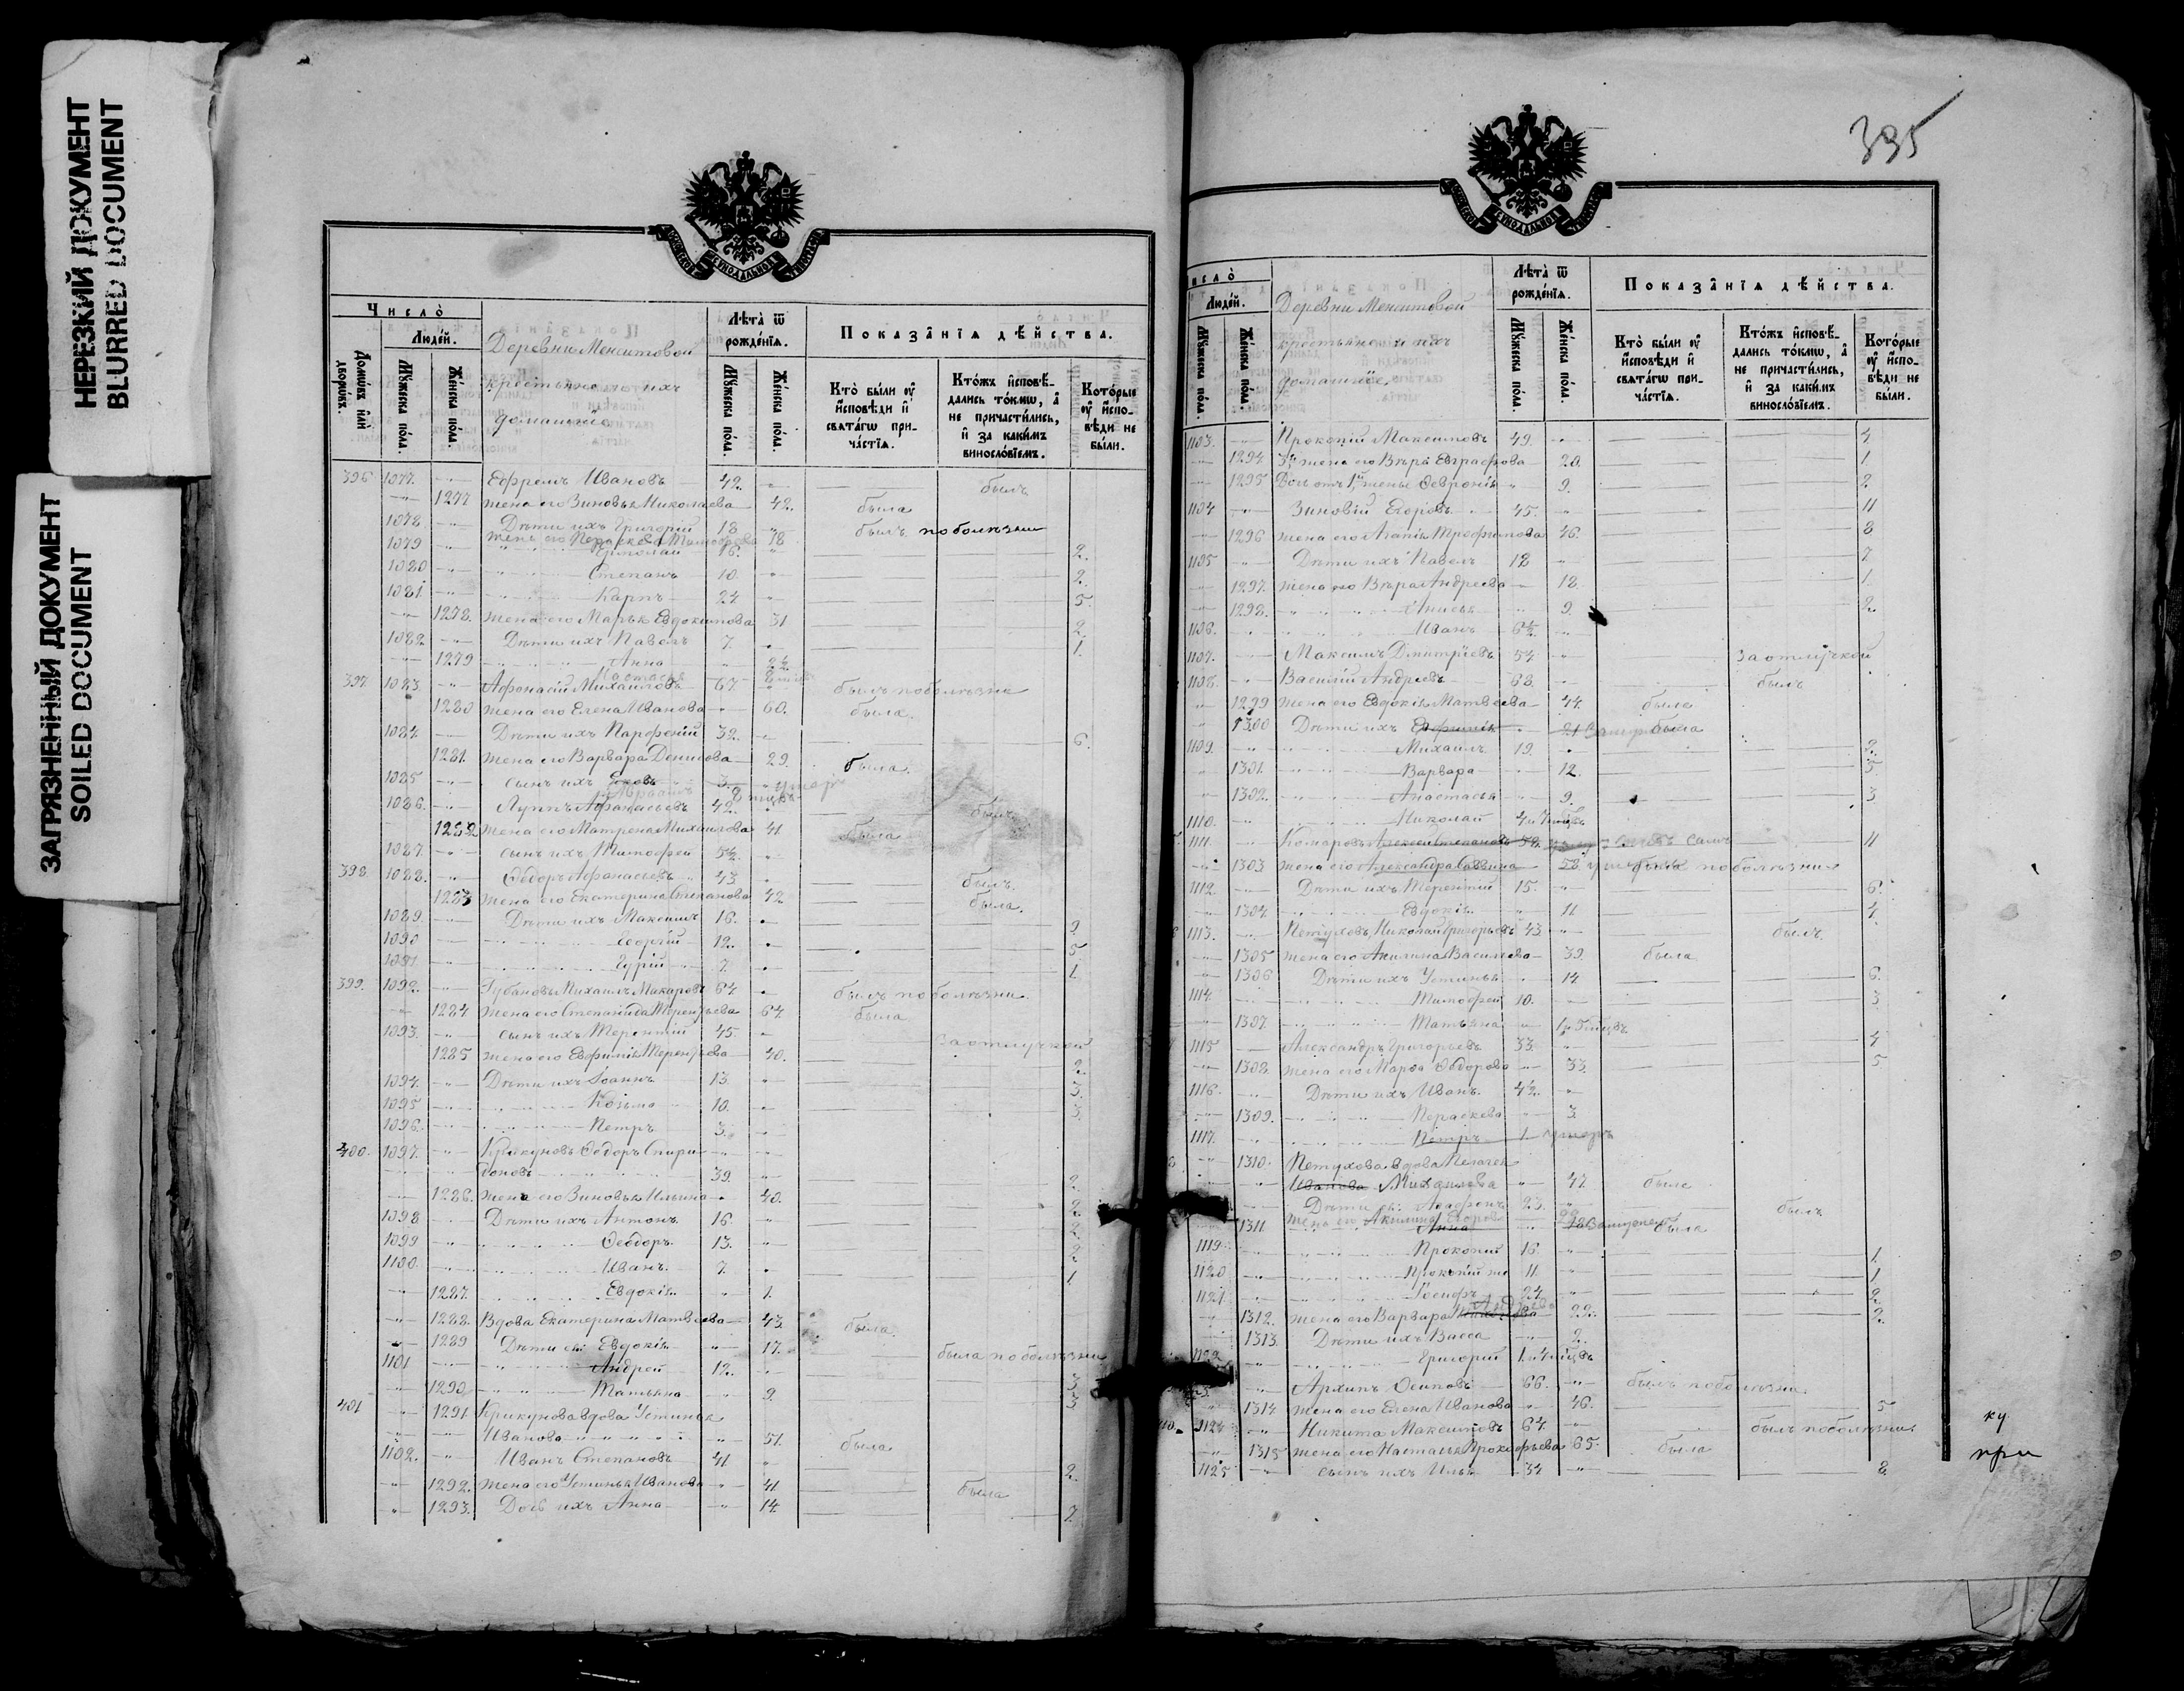 НЕРЕЗКИЙ ДОКУМЕНТ
BLURRED DOCUMENT
ЗАГРЯЗНЕННЫЙ ДОКУМЕНТ
SOILED DOCUMENT
Число̀
Домѡвъ и҆лѝ дворѡвъ.
Люде́й.
Мꙋ́жеска по́ла.
Же́нска по́ла.
Деревни Менситовой
крестьяне и ихъ
домашніе
Лѣ́та ѿ рожде́нїѧ.
Мꙋ́жеска по́ла.
Же́нска по́ла.
Показа̑нїѧ дѣ́йства.
Кто̀ бы́ли ᲂу҆ и҆сповѣ́ди и҆ свѧта́гѡ прича́стїѧ.
Кто́жъ и҆сповѣ́дались то́кмѡ, а҆ не причасти́лись, и҆ за каки́мъ винословїемъ.
Кото́рые ᲂу҆ и҆сповѣ́ди не бы́ли.
396 1077. Ефремъ Ивановъ 42. былъ
1277 жена его Зиновья Николаева 42. была
1078. Дѣти ихъ Григорій 18 былъ по болѣзни
жена его Параскева 18
1079 Ермолай 16. 2.
1080 Степанъ 10. 2.
1081 Карпъ 24 5.
1278. жена его Марья Евдокимова 31 2.
1082. Дѣти ихъ Павелъ 7. 1.
1279 Анна 2½
Настасья
397 1083 Афонасій Михаиловъ 67. былъ по болѣзни
1280 жена его Елена Иванова 60. была.
1084. Дѣти ихъ Парфеній 32. 6.
1281. жена его Варвара Денисова 29. была.
1085 сынъ ихъ Яковъ 3 умеръ
1086. Луппъ Афанасьевъ 42. былъ
1282 жена его Матрена Михаилова 41. была
1087. сынъ ихъ Тимофей 5½.
398 1088. Ѳедоръ Афонасьевъ 43 былъ.
1283 жена его Екатерина Степанова 42 была.
1089. Дѣти ихъ Максимъ 16. 2.
1090 Георгій 12. 5.
1091 Гурій 7. 1.
399. 1092. Губановъ Михаилъ Макаровъ 64. былъ по болѣзни
1284 жена его Степанида Терентьева 64. была
1093. сынъ ихъ Терентій 45. за отлучкой
1285 жена его Евфимія Терентьева 40. 2.
1094. Дѣти ихъ Іоаннъ 13. 3.
1095 Козьма 10. 3.
1096. Петръ 3.
400. 1097. Крикуновъ Ѳедоръ Спири-
доновъ 39. 2.
1286. жена его Зиновья Ильина 40. 2.
1098 Дѣти ихъ Антонъ 16. 2.
1099 Ѳеодоръ. 13. 2.
1100. Иванъ. 7. 1.
1287. Евдокія. 1.
1288. Вдова Екатерина Матвеева 43. была.
1289 Дѣти ея: Евдокія. 17. была по болѣзни
1101 Андрей 12. 3
1290 Татьяна 9. 3
401 1291 Крикунова вдова Устинья
Иванова 51. была
1102. Иванъ Степановъ 41. 2.
1292. жена его Устинья Иванова 41. была
1293. Дочь ихъ Анна 14. 7.
395
Люде́й.
Мꙋ́жеска по́ла.
Же́нска по́ла.
Деревни Менситовой
крестьяне и ихъ
домашніе,
Лѣ́та ѿ рожде́нїѧ.
Мꙋ́жеска по́ла.
Же́нска по́ла.
Показа̑нїѧ дѣ́йства.
Кто̀ бы́ли ᲂу҆ и҆сповѣ́ди и҆ свѧта́гѡ прича́стїѧ.
Кто́жъ и҆сповѣ́дались то́кмѡ, а҆ не причасти́лись, и҆ за каки́мъ винословїемъ.
Кото́рые ᲂу҆ и҆сповѣ́ди не бы́ли.
1103. Прокопій Максимовъ 49. 4
1294 3я жена его Вѣра Евграфова 20. 1.
1295 Дочь отъ 1й жены Февронія 9. 2
1104 Зиновій Егоровъ 45. 11
1296 жена его Агапія Трофимова 46. 8
1105 Дѣти ихъ Павелъ 18 7
1297. жена его Вѣра Андреева 18. 1.
1298. Анисья 9. 2.
1106. Иванъ 6½.
1107. Максимъ Дмитріевъ 54. за отлучкой
1108. Василій Андреевъ 68. былъ
1299 жена его Евдокія Матвеева 44. была
1300 Дѣти ихъ Евфимія 21 была
1109. Михаилъ 19. 2.
1301. Варвара 12. 5
1302. Анастасья 9. 3
1110. Николай
1111. Комаровъ Алексей Степановъ 11
1303 жена его Александра Саввина 58 была по болѣзни
1112. Дѣти ихъ Терентій 15. 6.
1304. Евдокія 11 4.
1113. Петуховъ Николай Григорьевъ 43 былъ.
1305 жена его Акилина Васильева 39. была
1306 Дѣти ихъ Устинья 14 6.
1114. Тимофей 10. 3.
1307. Татьяна
1115 Александръ Григорьевъ 33. 4
1308. жена его Марѳа Ѳедорова 33. 5
1116. Дѣти ихъ Иванъ. 4½.
1309. Параскева 3
1117. Петръ 1 умеръ
1310. Петухова вдова Пелагея
Иванова Михаилова 47. была
Дѣти ея: Агафонъ 23. былъ
жена его Акилина Егорова
1311 Анна 18 была
1119. Прокопій 16 1
1120 Прокопій же 11 1
1121 Іосифъ 24. 2.
Андреева
1312. жена его Варвара 22. 2.
1313. Дѣти ихъ Васса 2.
1122 Григорій
Архипъ Осиповъ 66. былъ по болѣзни
1314 жена его Елена Иванова 46. 5
1124 Никита Максимовъ 64. былъ по болѣзни
1315 жена его Настасья Прокофьева 65. была
1125 сынъ ихъ Илья 34 8.
ку
при